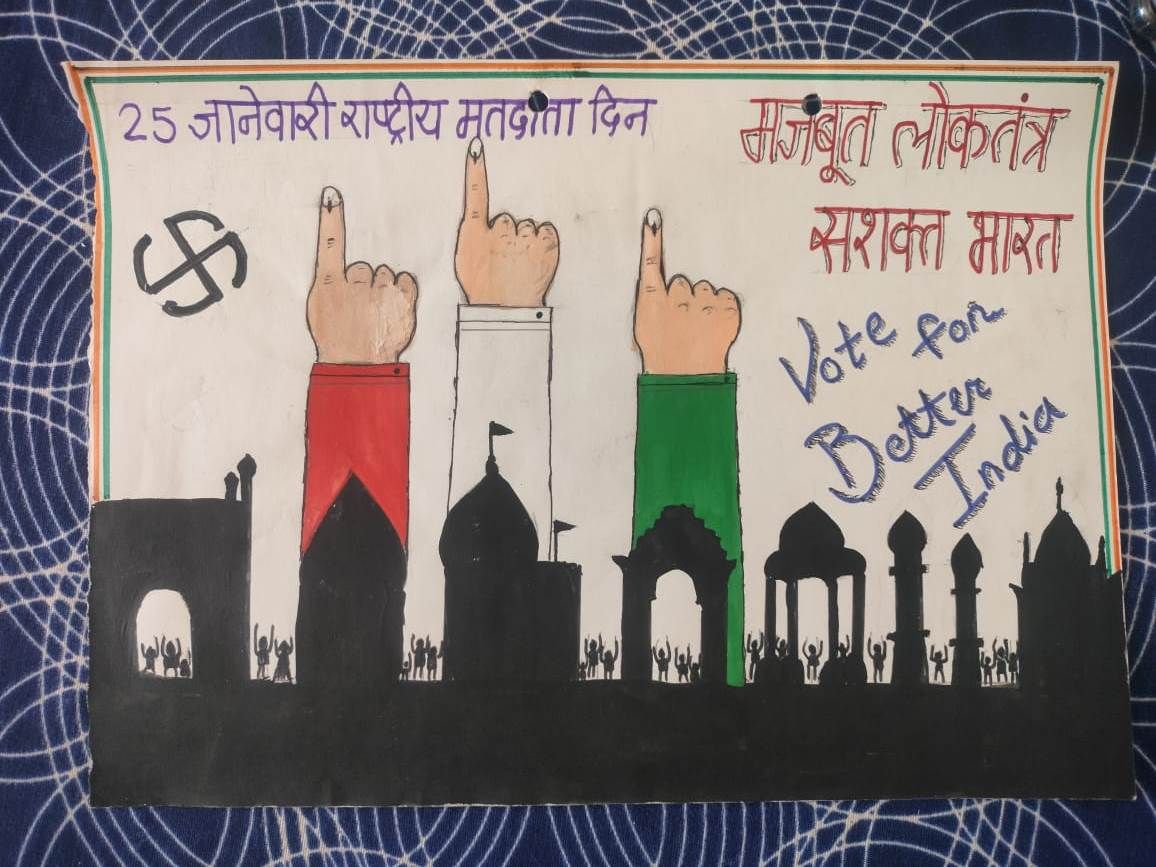 25 जानेवारी राष्ट्रीय मतदाता दिन
मजबूत लोकतंत्र
सशक्त भारत
Vote for
Better
India